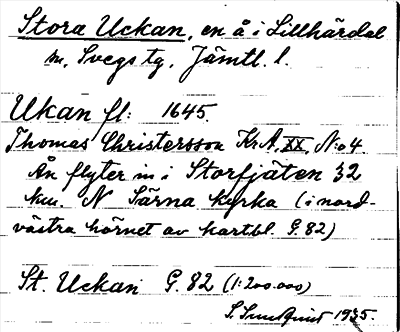 Stora Uckan, en å i Lillhärdal
sn, Svegs tg, Jämtl. l.
Ukan fl: 1645.
Thomas Christersson Kr.A. XX, N:o 4.
Ån flyter in i Storfjäten 32
km. N Särna kyrka (i nord-
västra hörnet av kartbl. G.82)
St. Uckan G.82 (1:200.000)
1935.